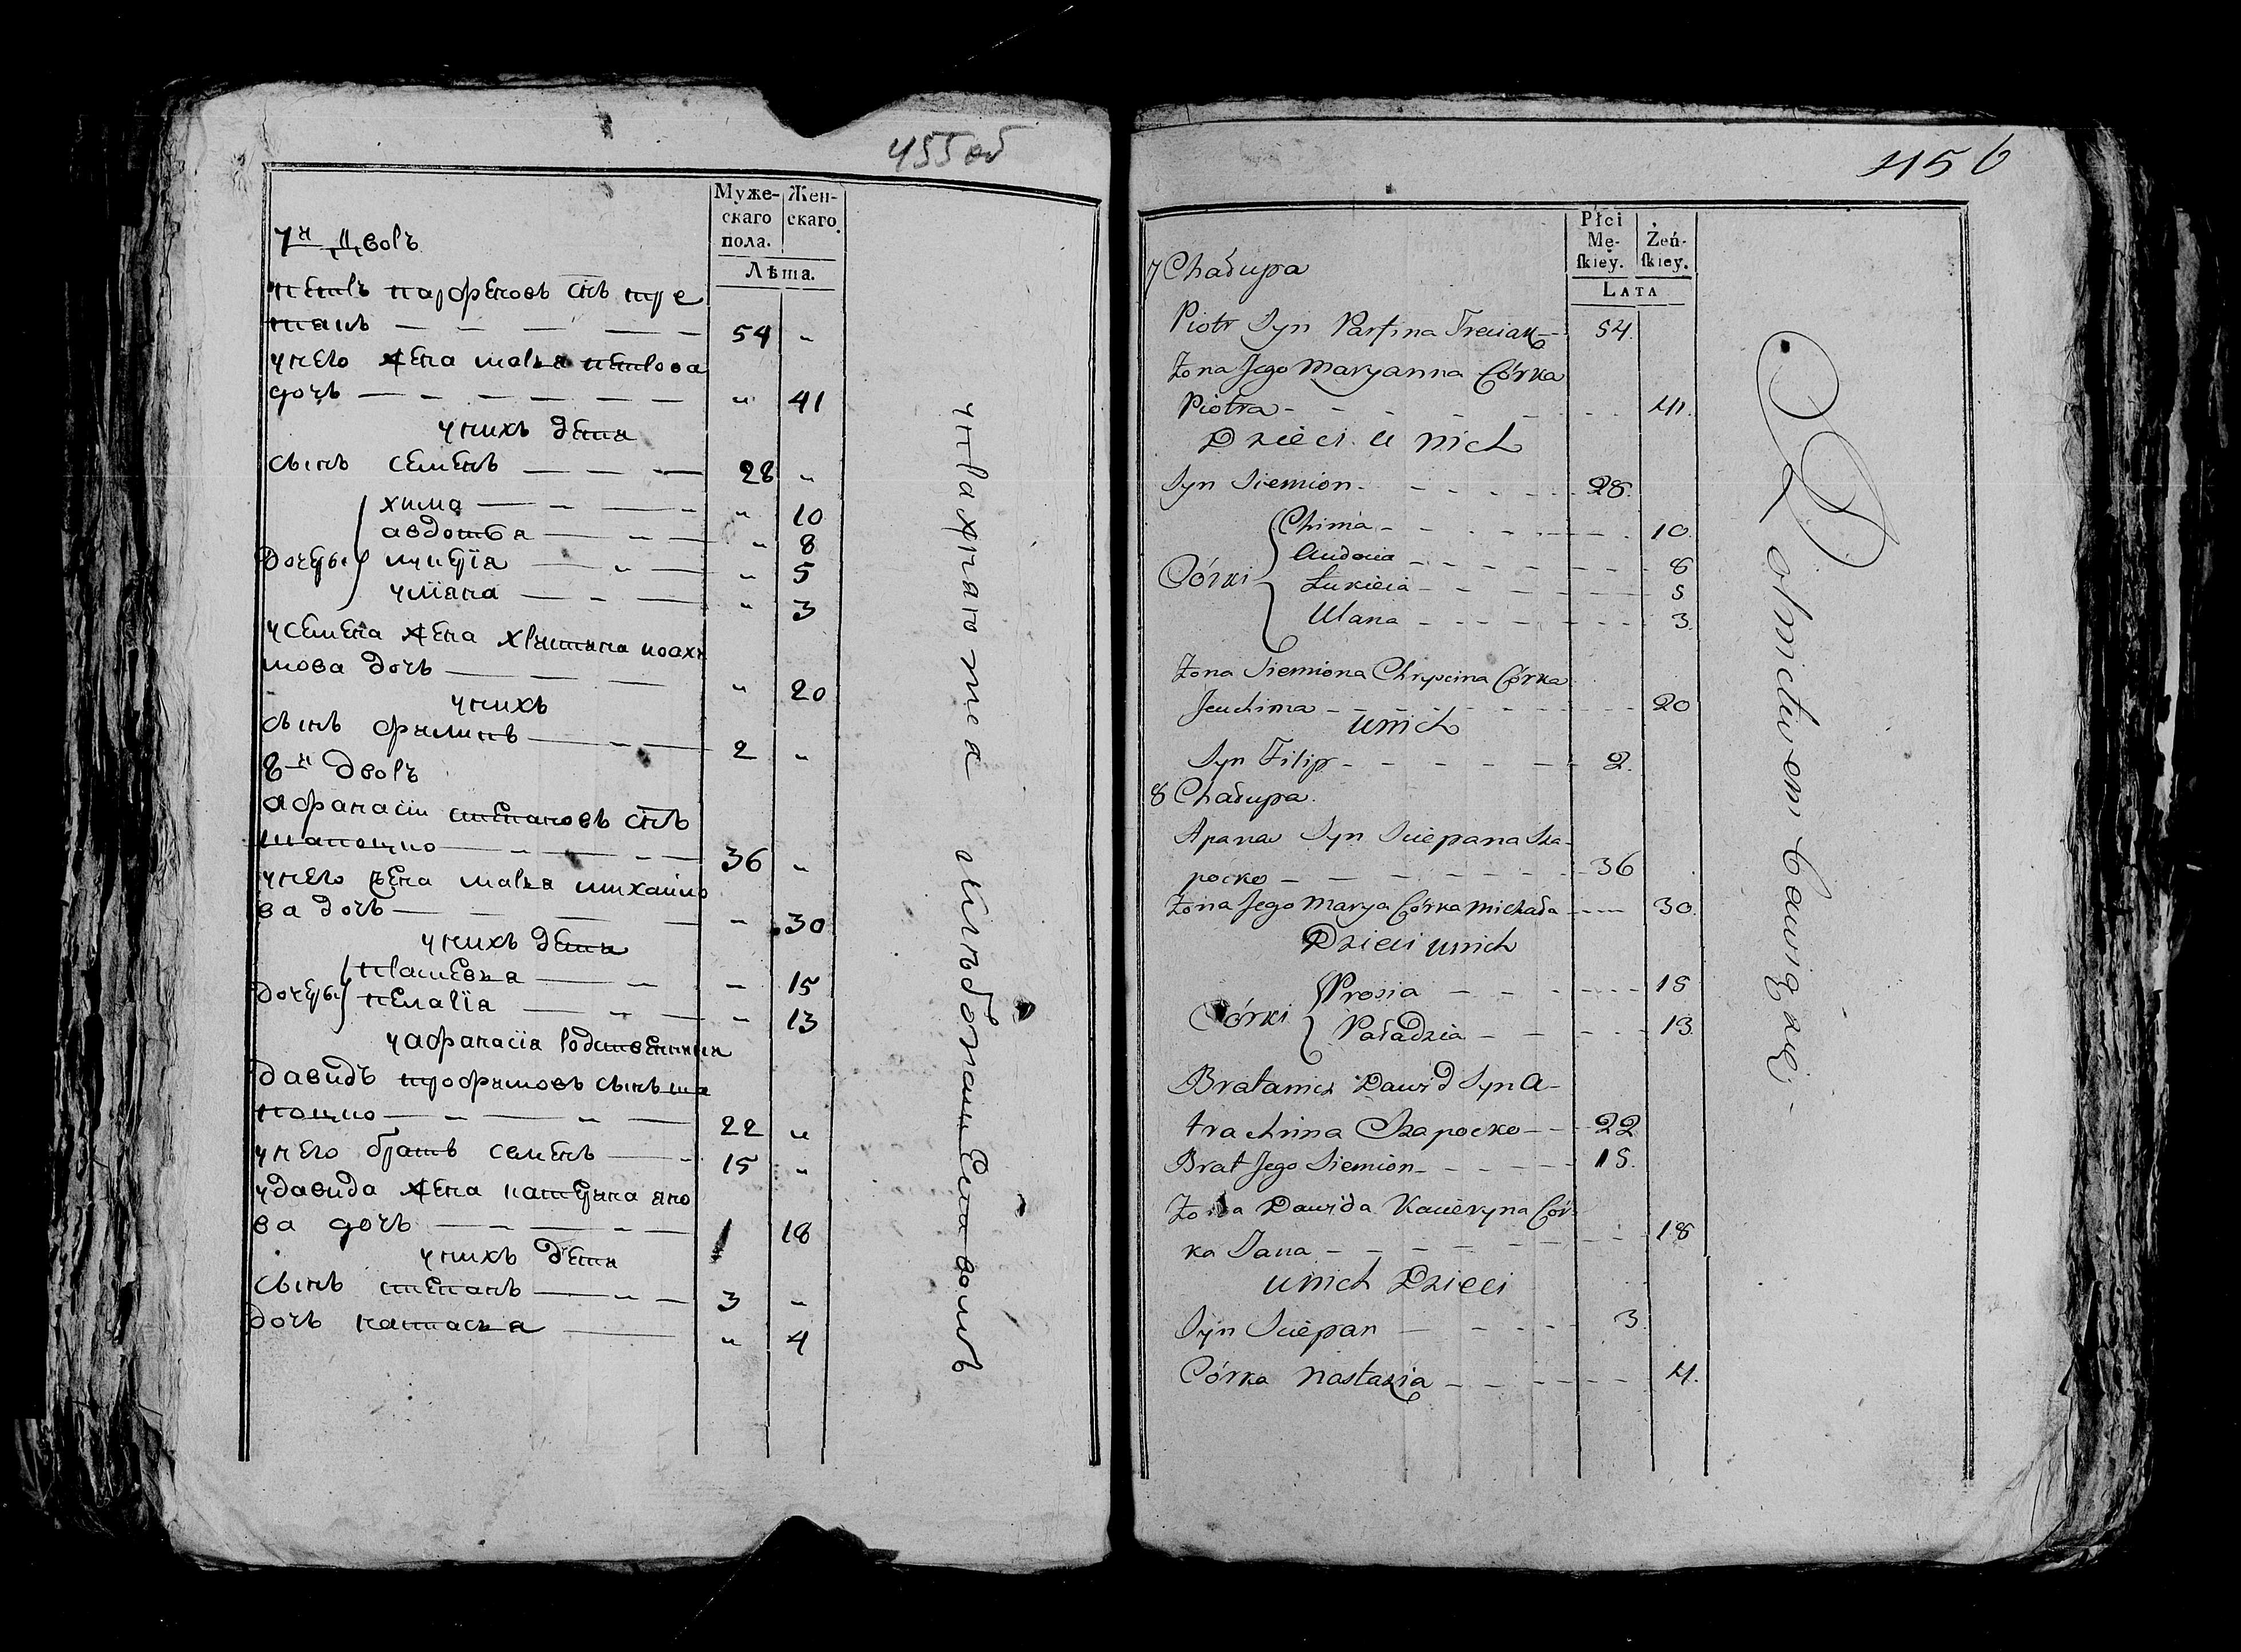 455 об
Муже-
скаго
пола.
Жен-
скаго.
Лѣта.
7й Дворъ
петръ парфеновъ снъ тре
тякъ 54 „
унего жена марья петрова
дочь „ 41
унихъ дети
сынъ семенъ 28 „
хима „ 10
авдотья „ 8
дочери „ 5
уліяна „ 3
усемена жена христина иоахи
мова дочь „ 20
унихъ
сынъ филипъ 2 „
8й дворъ
афанасіи степановъ снъ
шапоцко 36 „
унего жена марья михайло
ва дочь „ 30
унихъ дети
прасковья „ 15
дочери пелагія „ 13
уафанасія родственники
давидъ трофимовъ сынъ ша
поцко 22 „
унего братъ семенъ 15 „
удавида жена катерина яно
ва дочь 18
унихъ дети
сынъ степанъ 3 „
дочь настасья „ 4
456
Płci
Mę-
skiey.
Żeń-
skiey.
LATA
7 Chałupa
Piotr Syn Partina Treciak 54.
Żona Jego Maryanna Córka
Piotra 41.
Dzieci u nich
Syn Siemion 28.
Chima 10.
Audocia 8
Córki Łukieia 5
Ulana 3.
Żona Siemiona Chryscina Córka
Jeuchima 20
u nich
Syn Filip 2.
8 Chałupa.
Apanas Syn Sciepana Sza-
pocko 36
Żona Jego Marya Córka Michała 30.
Dzieci u nich
Prosia 15
Córki Paładzia 13
Bratanicz Dawid Syn A-
trachima Szapocko 22
Brat Jego Siemion 15.
Żona Dawida Kacieryna Cór-
ka Jana 18
u nich Dzieci
Syn Sciepan 3.
Córka Nastazia 4.